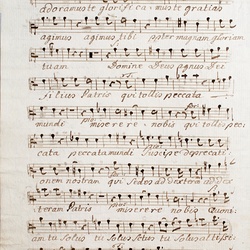 adoramus te glorifica=mus te gratias
agimus agimus tibi ppter magnam gloriam
tuam Domine Deus agnus Dei
filius Patris qui tollis peccata
mundi miserere nobis qui tollis pec:
cata peccata mundi Suscipe deprecati
onem nostram qui Sedes ad dexteram
teram Patris miserere nobis Quoni:
am tu Solus tu Solus Solus tu Solus altissi